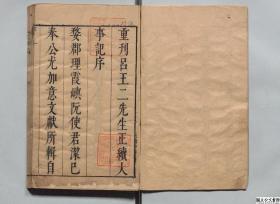 重刊呂王二先生正續大
事記序
婺郡理霞嶼阮使君潔已
奉公尤加意文獻所輯自